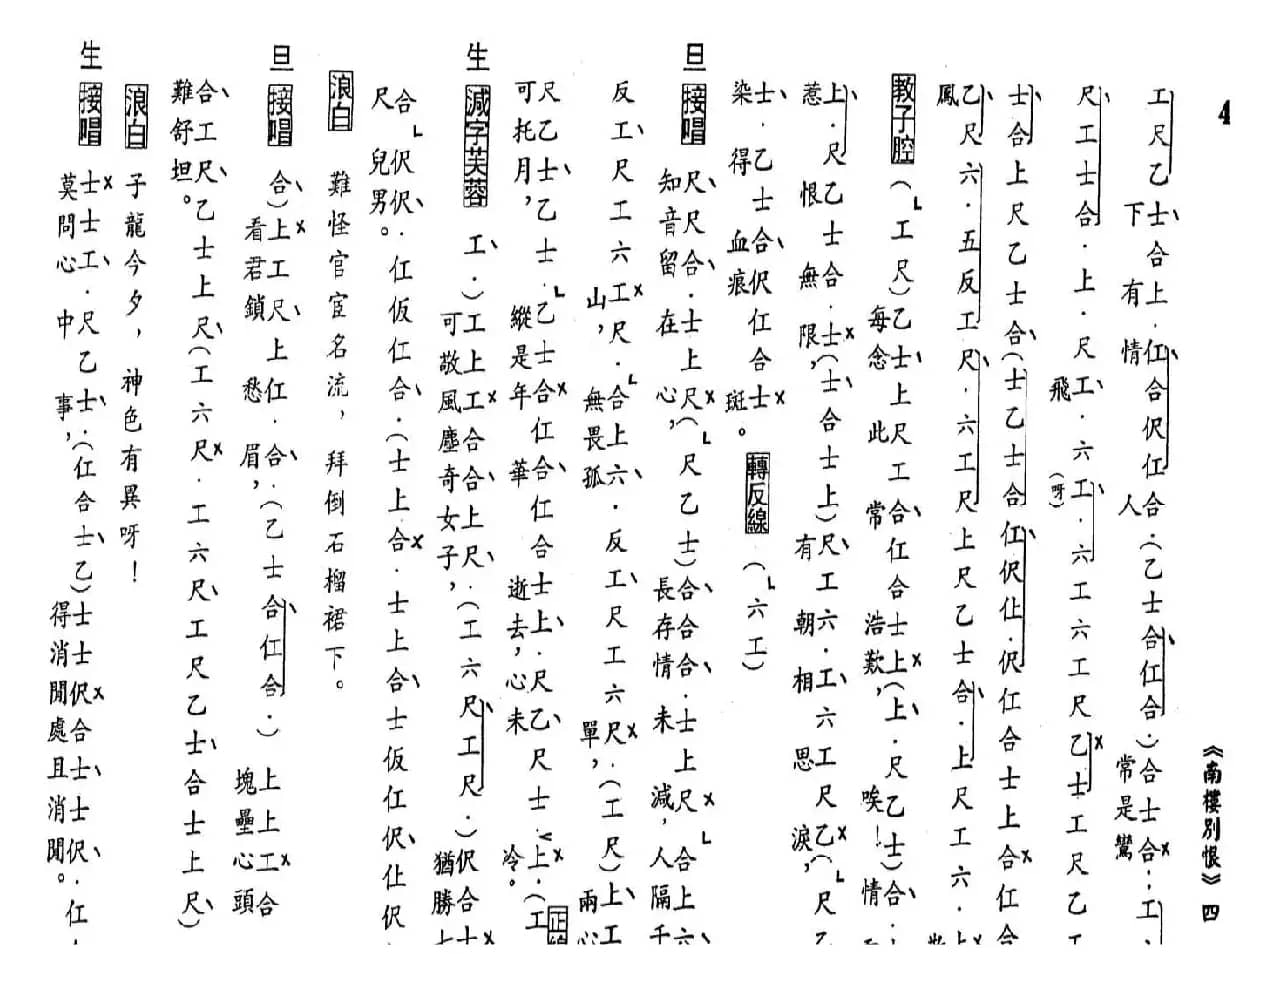 4
《南樓別恨》四
工尺乙士合上.仜合伬仜合.(乙士合仜合.)合士合.工
下有情人常是鸞
尺工士合.上.尺工.六工.六工六工尺乙士工尺乙工
飛(呀)
士合上尺乙士合(士乙士合仜伬仩.伬仜合士上合仜合
乙尺六.五反工尺.六工尺上尺乙士合.上尺工六.上
鳳
教子腔(工尺)乙士上尺工合仜合士上(上.尺乙士)合
每念此常浩歎，唉！情
上.尺乙士合.士(士合士上)尺工六.工六工尺乙(尺乙
惹恨無限，有朝相思淚，
士.乙士合伬仜合士 轉反線 (六工)
染得血痕斑。
旦 接唱 尺尺合.士上尺(尺乙士)合合合.士上尺合上六
知音留在心，長存情未減，人隔千
反工尺工六工尺.合上六.反工尺工六尺.(工尺)上工
山，無畏孤單，兩心
尺乙士乙士.乙士合仜合仜合士上.尺乙尺士上.(工
可托月，縱是年華逝去，心未冷。
生 減字芙蓉 工.)工上工合合上尺.(工六尺工尺.)伬合士
可敬風塵奇女子，猶勝
尺合伬伬.仜仮仜合.(士上合.士上合士仮仜伬仩伬
兒男。
浪白 難怪官宦名流，拜倒石榴裙下。
旦 接唱 合)上工尺上仜.合.(乙士合仜合.)上上工合
看君鎖愁眉，塊壘心頭
合工尺乙士上尺(工六尺.工六尺工尺乙士合士上尺)
難舒坦。
浪白 子龍今夕，神色有異呀！
生 接唱 士士工.尺乙士.(仜合士乙)士士伬合士士伬.仜
莫問心中事，得消閒處且消閒。